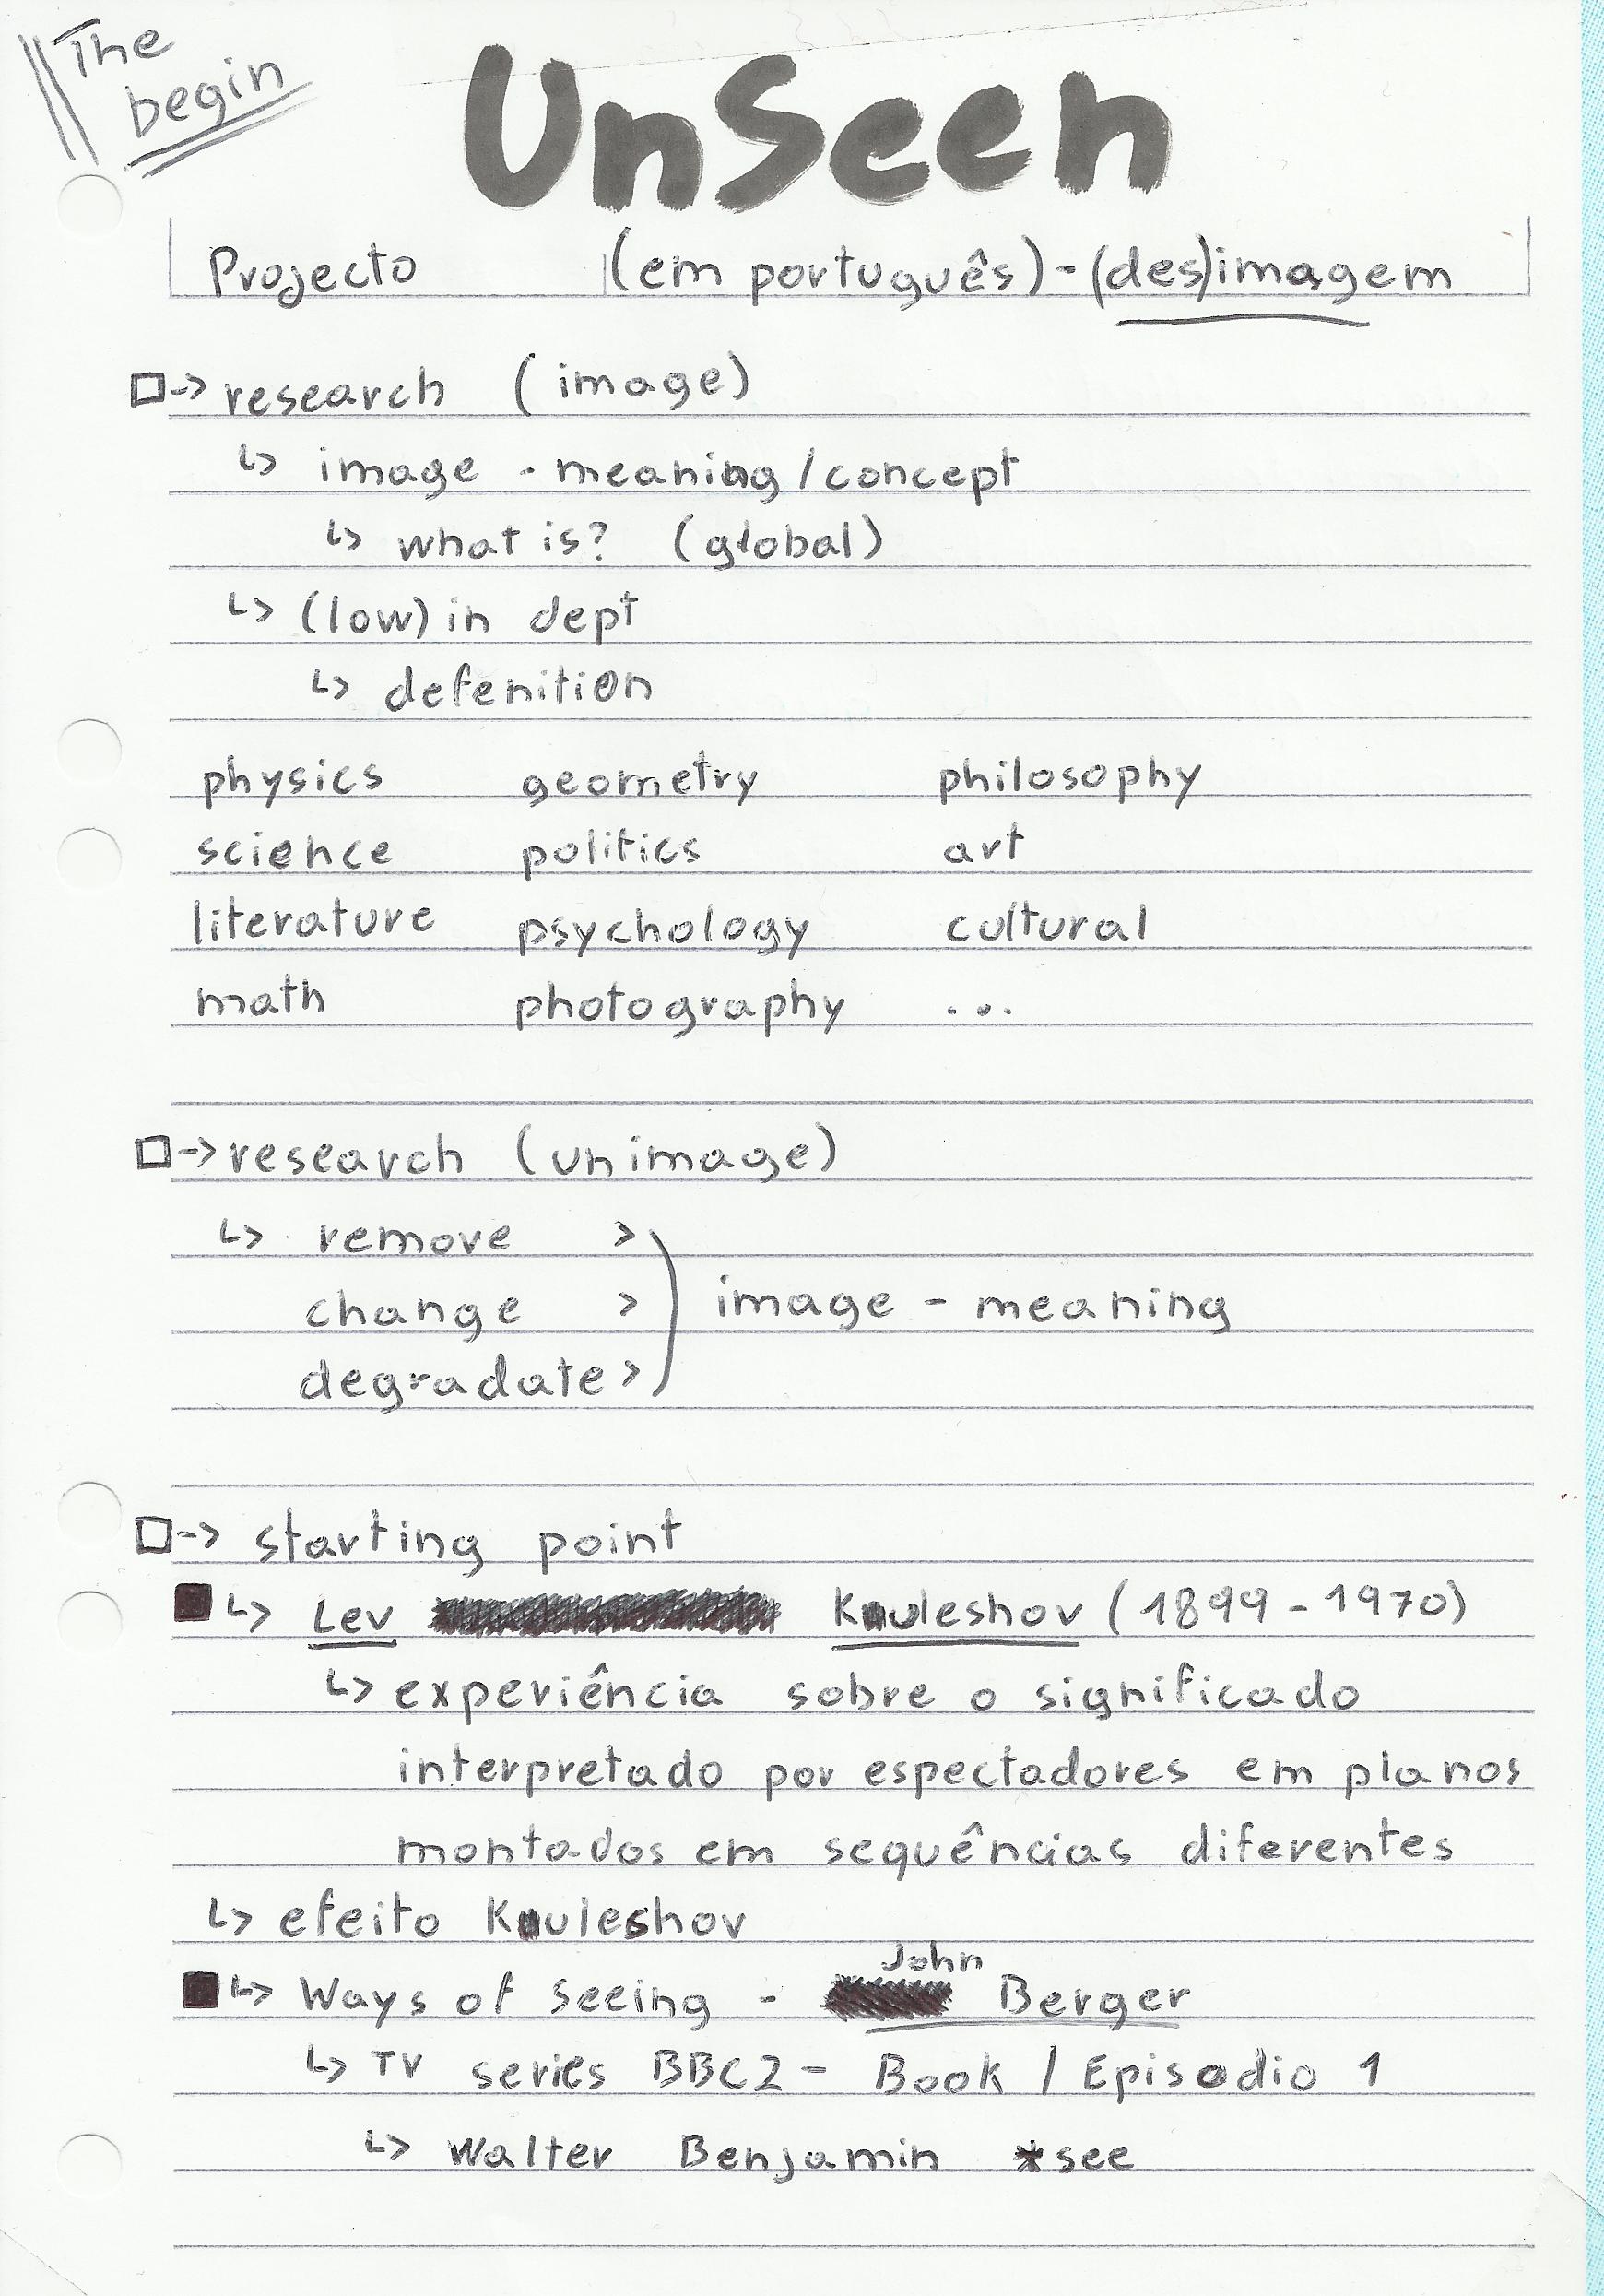 The
begin
UnSeen
Projecto (em português) - (des)imagem
□-> research (image)
↳ image - meaning / concept
↳ what is? (global)
↳ (low) in dept
↳ defenition
physics geometry philosophy
science politics art
literature psychology cultural
math photography ...
□-> research (unimage)
↳ remove >
change > image - meaning
degradate >
□-> starting point
■ ↳ Lev Kuleshov (1899 - 1970)
↳ experiência sobre o significado
interpretado por espectadores em planos
montados em sequências diferentes
↳ efeito Kuleshov
John
■ ↳ Ways of seeing - Berger
↳ TV series BBC2 - Book / Episodio 1
↳ Walter Benjamin *see